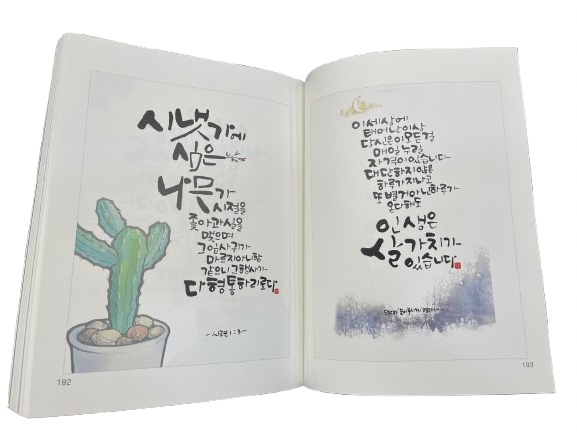 시냇가에
심은
나무가
시절을
좇아 과실을
맺으며
그 잎사귀가
마르지 아니함
같으니 그 행사가
다 형통하리로다
192
이 세상에
태어난 이상
당신은 이 모든 걸
매일 누릴
자격이 있습니다
대단하지 않은
하루가 지나고
또 별거 아닌 하루가
온다 해도
인생은
살 가치가
있습니다
193